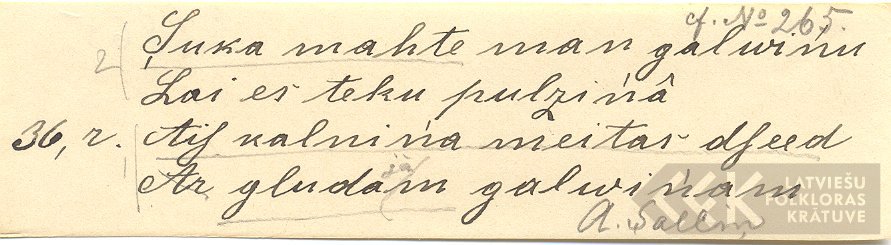 cf. № 265.
2) Şuka mahte man galwiņu
Lai es teku pulziņâ
36, 2. Aiſ kalniņa meitas dſeed
jā
Ar gludam galwiņam
LATVIEŠU
FOLKLORAS
KRĀTUVE